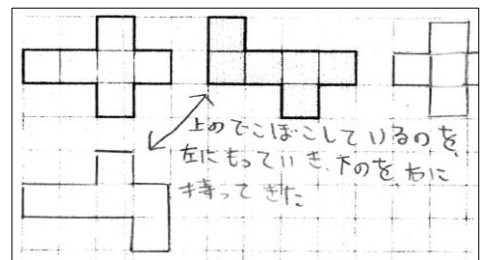 上のでこぼこしているのを、
左にもっていき、下のを、右に
持ってきた